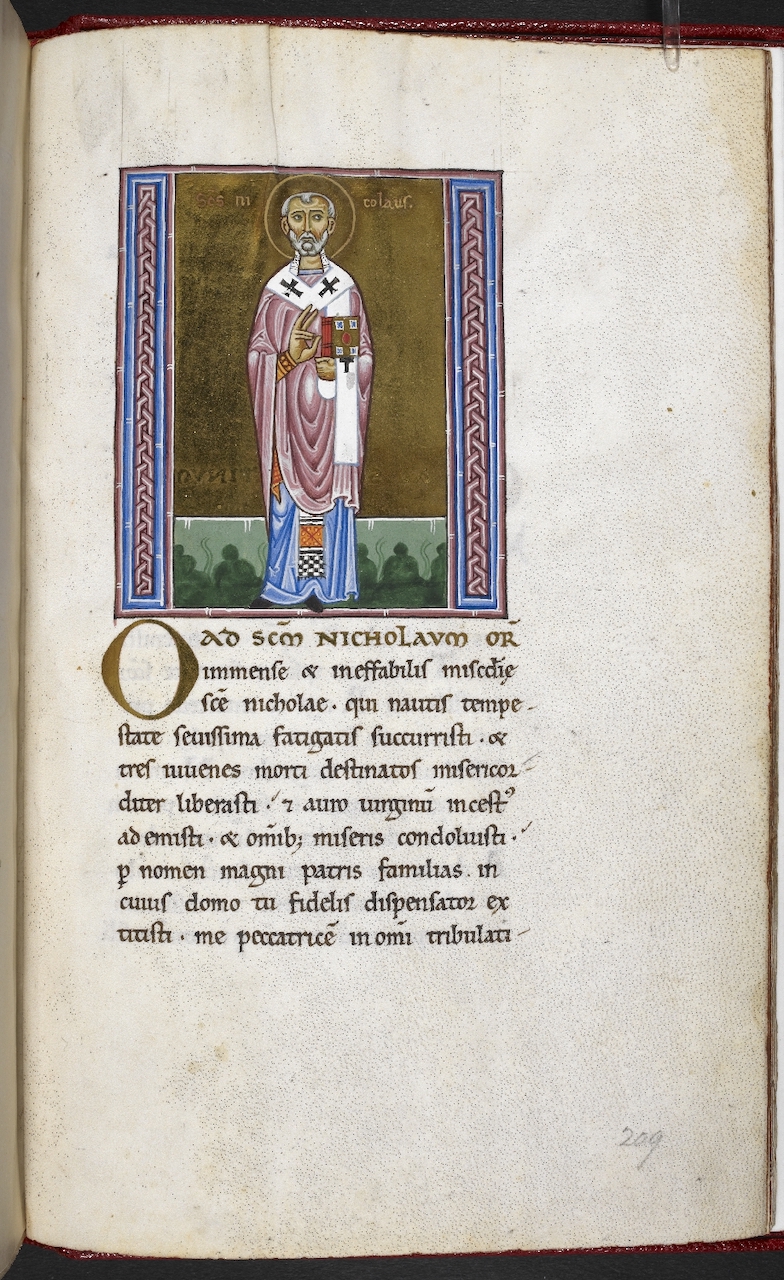 Scs ni colaus.
AD SCM̄ NICHOLAVM OR̄
O immense & ineffabilis misc̄dię
sc̄e nicholae · qui nautis tempe-
state seuissima fatigatis succurristi · &
tres iuuenes morti destinatos misericor-
diter liberasti · ⁊ auro uirginū incestꝰ
ademisti · & om̄ib; miseris condoluisti ·
ꝑ nomen magni patris familias · in
cuius domo tu fidelis dispensator ex
titisti · me peccatricē in om̄i tribulati-
209